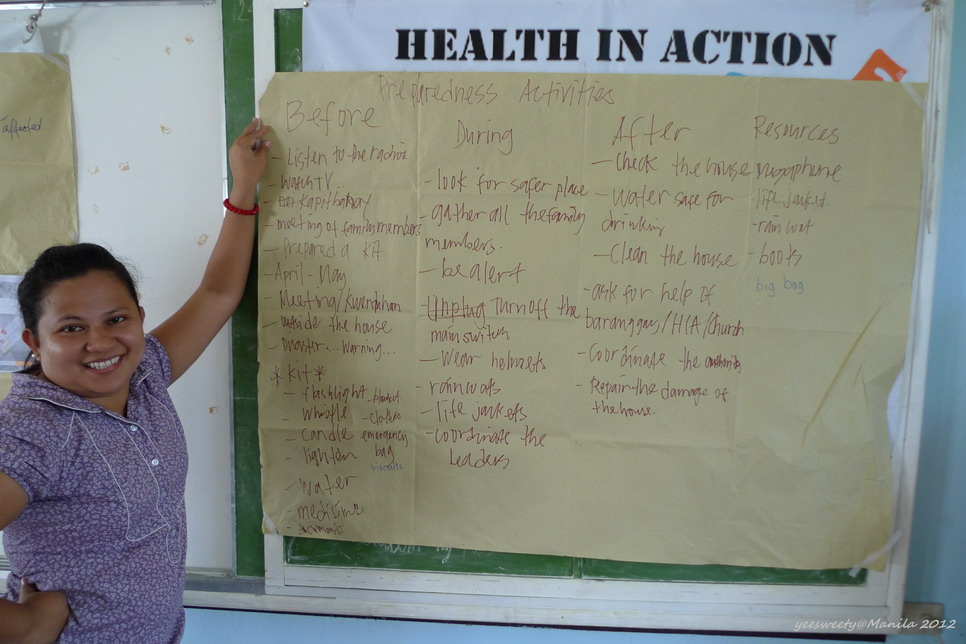 HEALTH IN ACTION
affected
Preparedness Activities
Before
- Listen to the radio
- Watch TV..
- meeting of family members
- Prepared a kit
- April - May
- Meeting/
- outside the house
- Disaster... Warning...
* Kit *
- flashlight - blanket
- whistle - clothes
- candle emergency
- lighten bag
biscuits
- Water
- medicine
- documents
During
- look for safer place
- gather all the family
members.
- be alert
- Unplug Turn off the
main switch
- Wear helmets
- raincoats
- life jackets
- coordinate the
Leaders
After
- Check the house
- Water safe for
drinking
- Clean the house
- ask for help if
barangay/HCA/Church
- Coordinate the
- Repair the damage of
the house.
Resources
megaphone
life jacket
- raincoat
- boots
big bag
yeesweety@Manila 2012